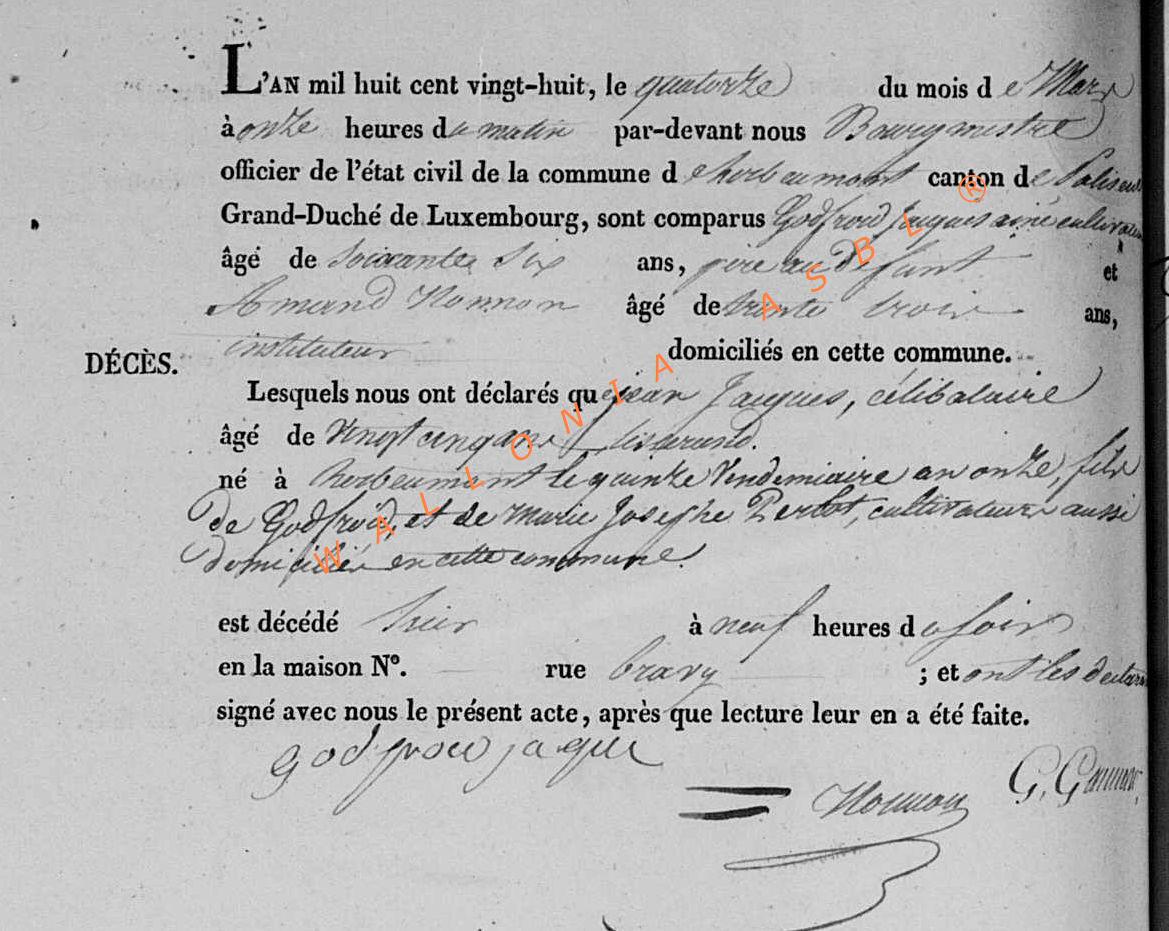 L'AN mil huit cent vingt-huit, le quatorze du mois de Mars
à onze heures du matin par-devant nous Bourgmestre
officier de l'état civil de la commune d'herbeumont canton de Paliseul
Grand-Duché de Luxembourg, sont comparus Godfroid Jacques ainé cultivateur
âgé de Soixante Six ans, père au Défunt et
Amand Nonnon âgé de trente trois ans,
instituteur domiciliés en cette commune.
DÉCÈS.
Lesquels nous ont déclarés que jean Jacques, célibataire
âgé de Vingt cinq ans tisserand.
né à herbeumont le quinze Vendemiaire an onze, fils
de Godfroid, et de Marie Josephe Perlot, cultivateurs aussi
Domiciliés en cette commune.
est décédé hier à neuf heures du soir
en la maison N°. rue bravy ; et ont les déclarans
signé avec nous le présent acte, après que lecture leur en a été faite.
godfroid jaque
Nonnon
WALLONIA ASBL ®